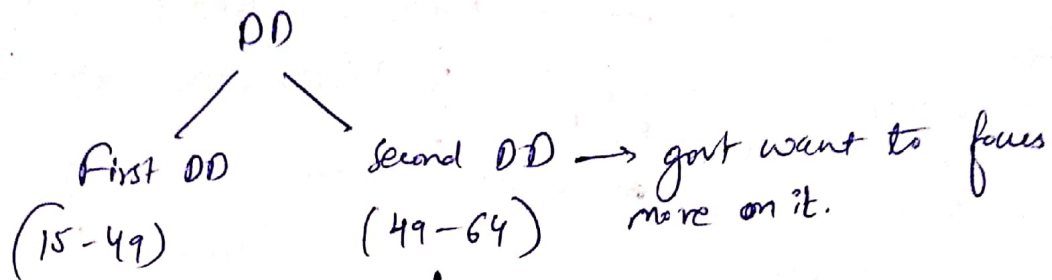 DD
First DD
Second DD → govt want to focus
more on it.
(15-49)
(49-64)